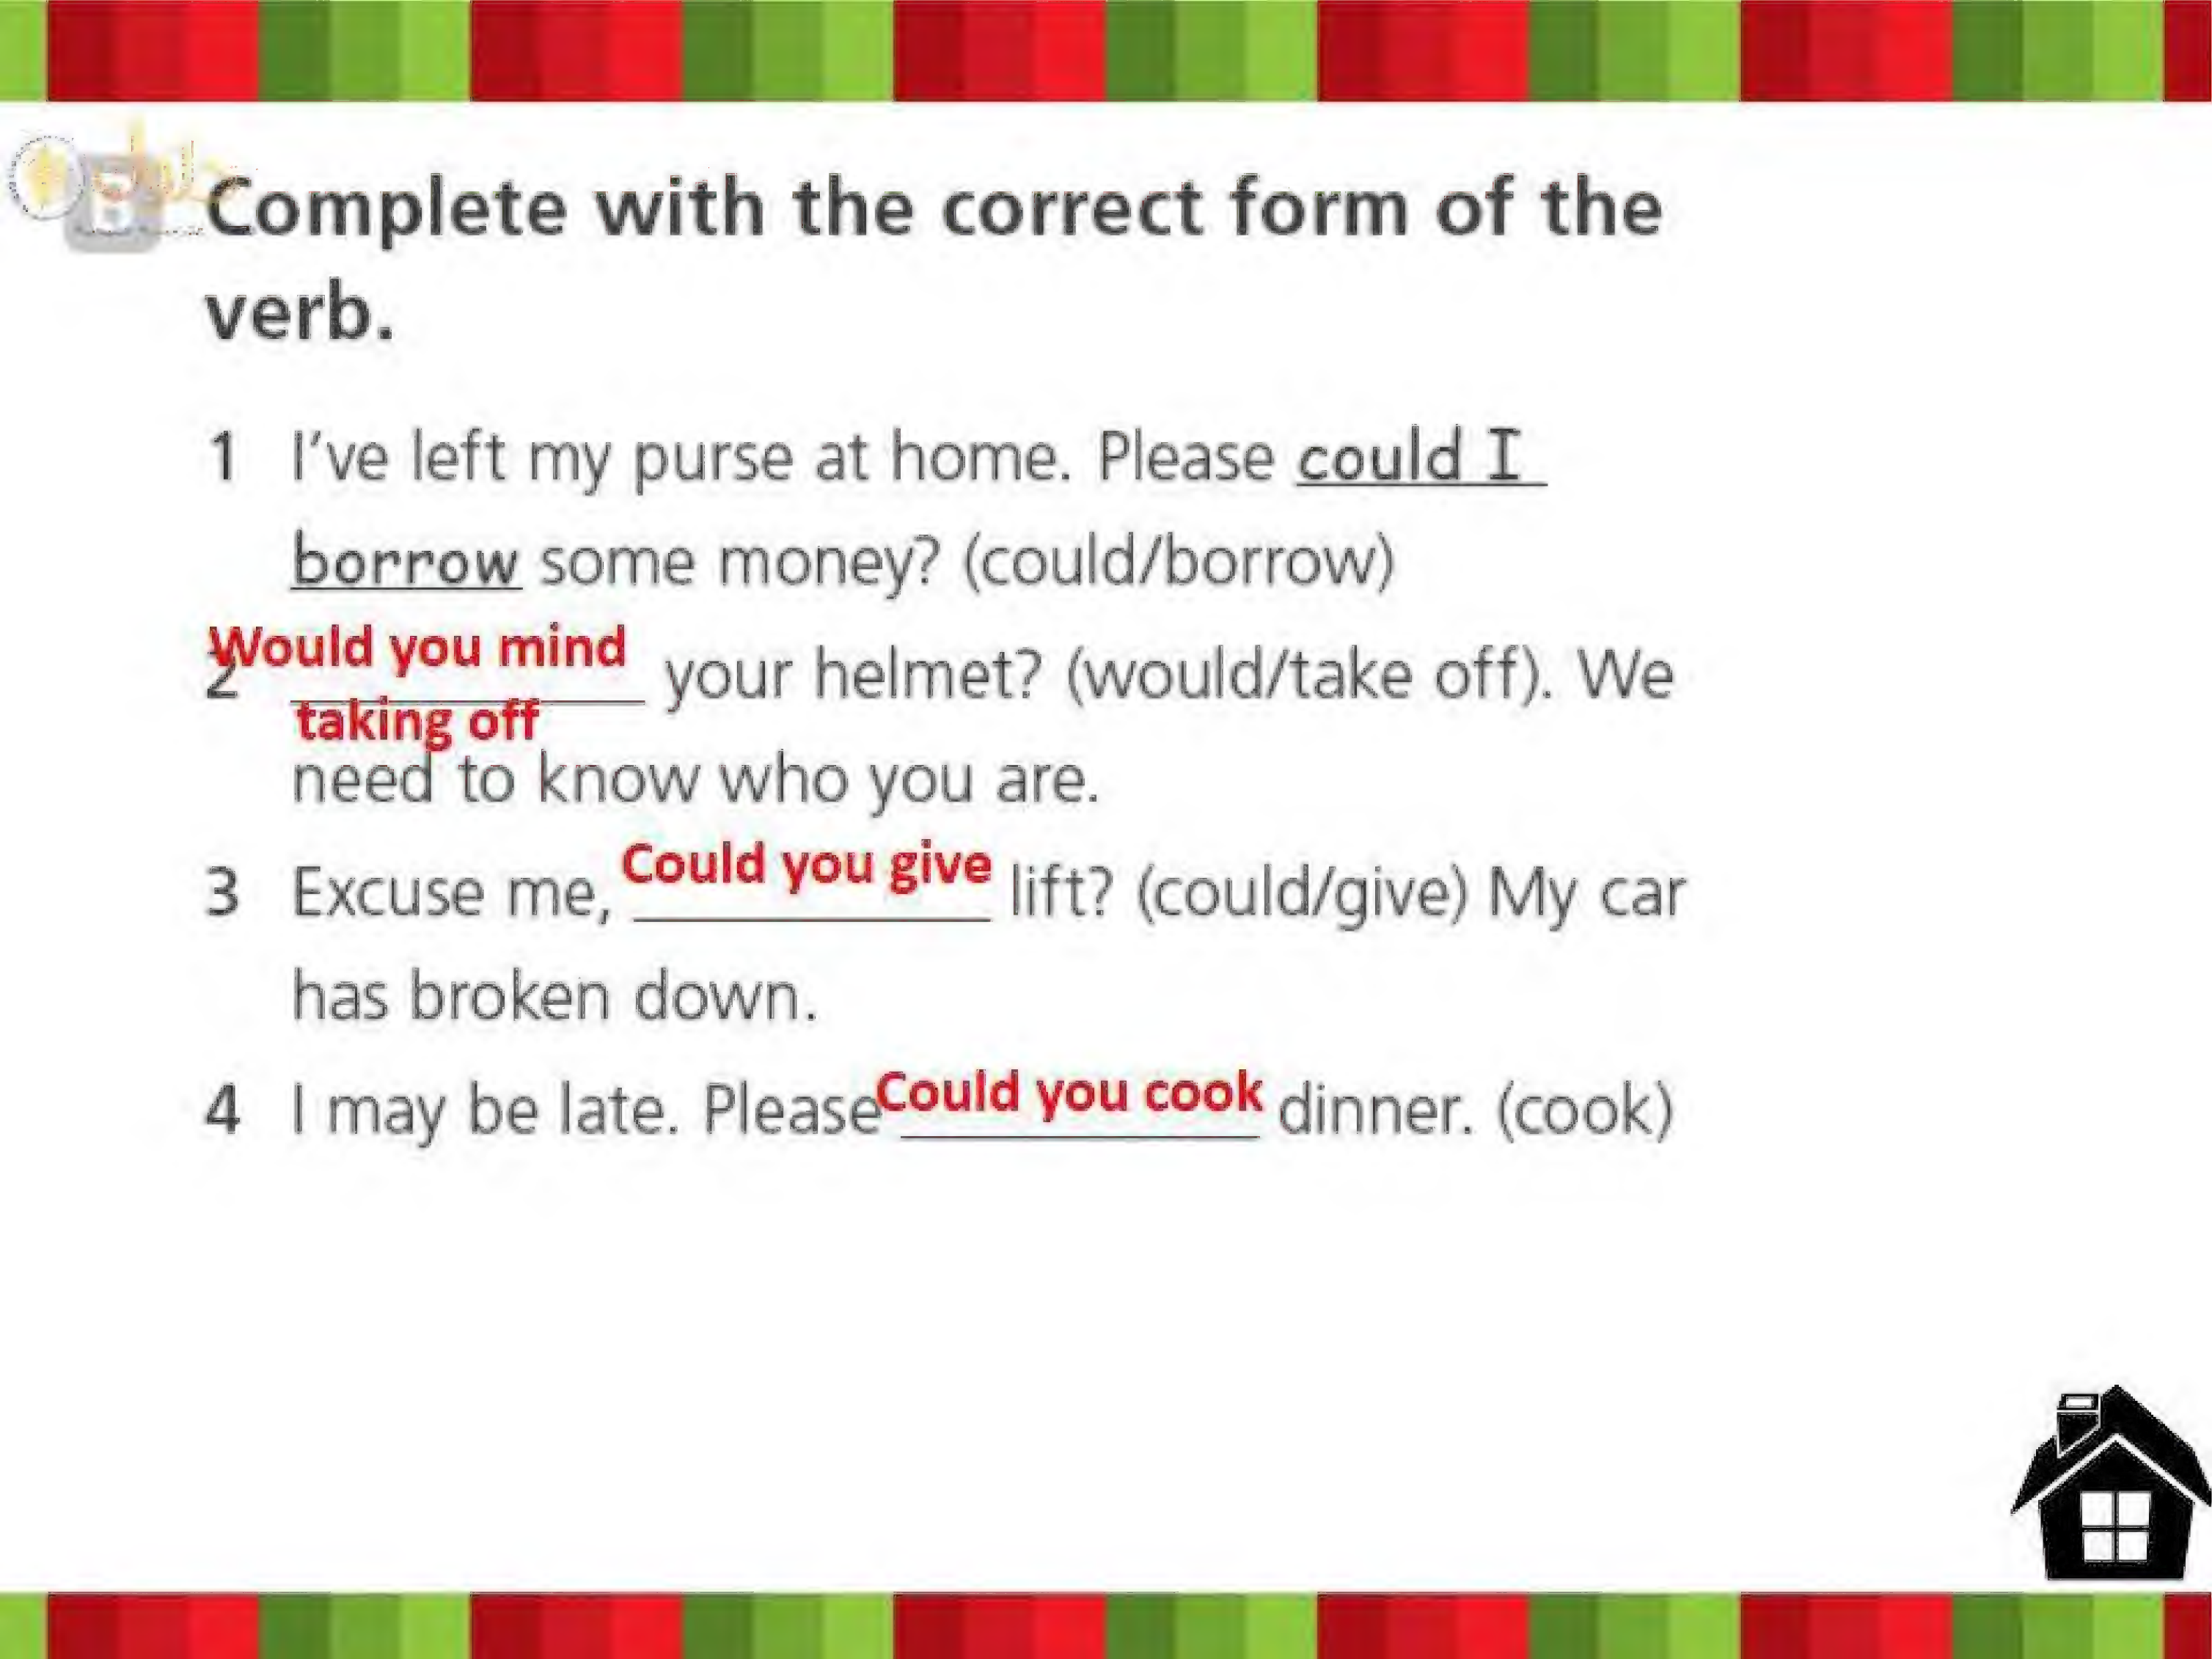 B Complete with the correct form of the
verb.
1 I've left my purse at home. Please could I
borrow some money? (could/borrow)
Would you mind
2 ____________ your helmet? (would/take off). We
taking off
need to know who you are.
3 Excuse me, Could you give lift? (could/give) My car
has broken down.
4 I may be late. Please Could you cook dinner. (cook)